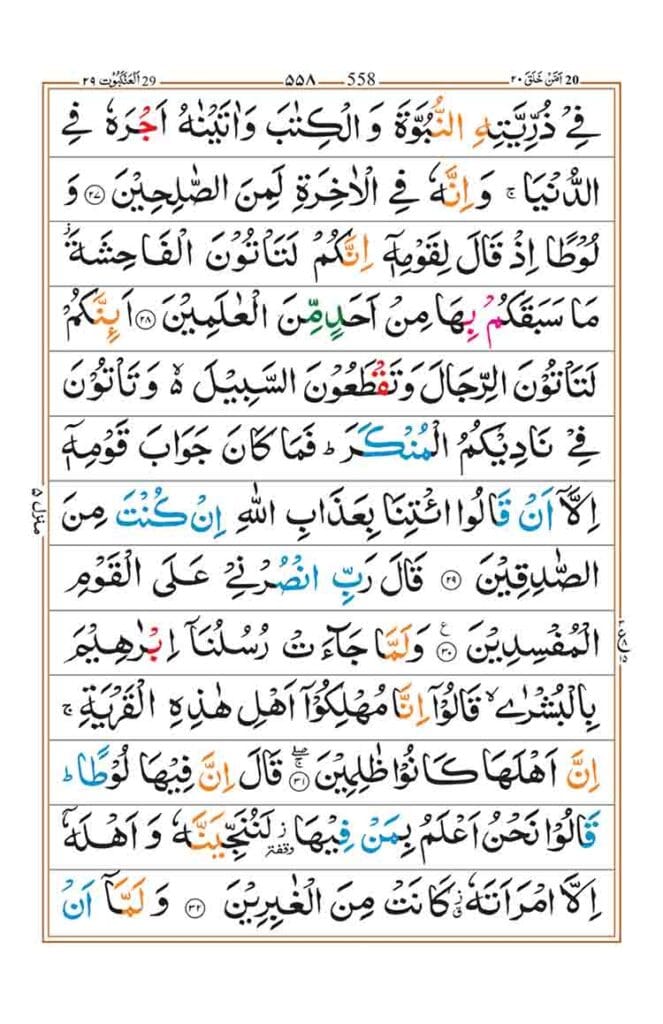 20 اَمَّنۡ خَلَقَ ٢٠ 558 ۵۵۸ 29 اَلۡعَنۡكَبُوۡت ٢٩
فِىۡ ذُرِّيَّتِهِ النُّبُوَّةَ وَ الۡكِتٰبَ وَاٰتَيۡنٰهُ اَجۡرَهٗ فِى
الدُّنۡيَا ۚ وَاِنَّهٗ فِى الۡاٰخِرَةِ لَمِنَ الصّٰلِحِيۡنَ ﴿۲۷﴾ وَ
لُوۡطًا اِذۡ قَالَ لِقَوۡمِهٖۤ اِنَّكُمۡ لَتَاۡتُوۡنَ الۡفَاحِشَةَ ز
مَا سَبَقَكُمۡ بِهَا مِنۡ اَحَدٍ مِّنَ الۡعٰلَمِيۡنَ ﴿۲۸﴾ اَٮِٕنَّكُمۡ
لَتَاۡتُوۡنَ الرِّجَالَ وَتَقۡطَعُوۡنَ السَّبِيۡلَ ۙ وَتَاۡتُوۡنَ
فِىۡ نَادِيۡكُمُ الۡمُنۡكَرَ ؕ فَمَا كَانَ جَوَابَ قَوۡمِهٖۤ
اِلَّاۤ اَنۡ قَالُوا ائۡتِنَا بِعَذَابِ اللّٰهِ اِنۡ كُنۡتَ مِنَ
الصّٰدِقِيۡنَ ﴿۲۹﴾ قَالَ رَبِّ انْصُرۡنِىۡ عَلَى الۡقَوۡمِ
الۡمُفۡسِدِيۡنَ ﴿۳۰﴾ ع وَلَمَّا جَآءَتۡ رُسُلُنَاۤ اِبۡرٰهِيۡمَ
بِالۡبُشۡرٰى ۙ قَالُوۡۤا اِنَّا مُهۡلِكُوۡۤا اَهۡلِ هٰذِهِ الۡقَرۡيَةِ ۚ
اِنَّ اَهۡلَهَا كَانُوۡا ظٰلِمِيۡنَ ﴿۳۱﴾ ۖۚ قَالَ اِنَّ فِيۡهَا لُوۡطًا ؕ
قَالُوۡا نَحۡنُ اَعۡلَمُ بِمَنۡ فِيۡهَا ز وقفة لَـنُـنَجِّيَـنَّهٗ وَ اَهۡلَهٗۤ
اِلَّا امۡرَاَتَهٗ ز ق كَانَتۡ مِنَ الۡغٰبِرِيۡنَ ﴿۳۲﴾ وَ لَمَّاۤ اَنۡ
منزل ۵